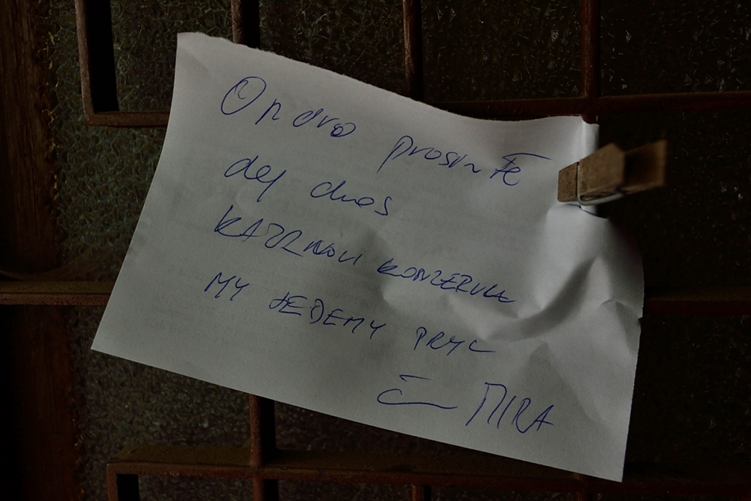 Ondro prosim Tě
dej dnes
KAŽDÉMU KONZERVU
MY JEDEMY PRYC
MIRA